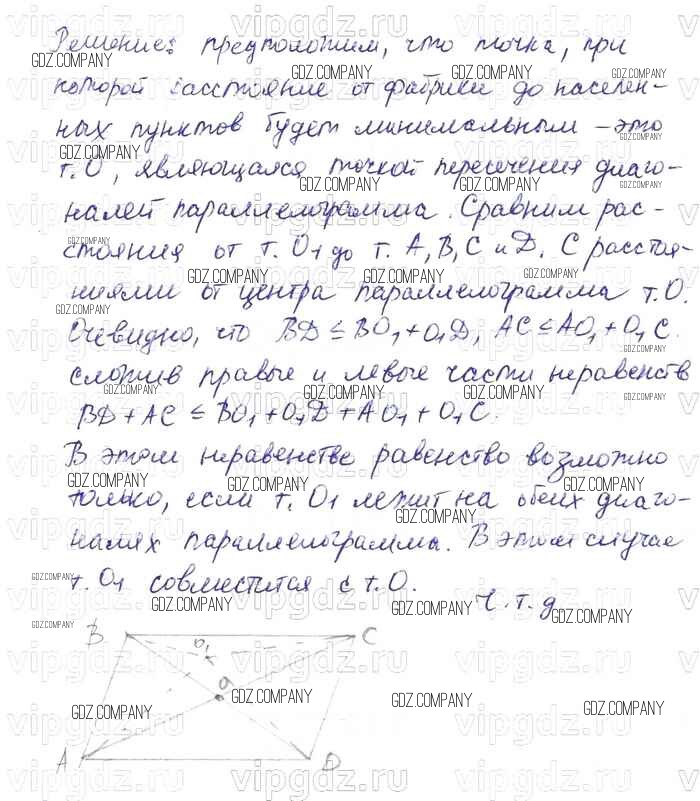 Решение: предположим, что точка, при
которой расстояние от фабрики до населен-
ных пунктов будет минимальным – это
т. О, являющаяся точкой пересечения диаго-
налей параллелограмма. Сравним рас-
стояния от т. O₁ до т. A, B, C и D, с расстоя-
ниями от центра параллелограмма т. О.
Очевидно, что BD ≤ BO₁ + O₁D, AC ≤ AO₁ + O₁C.
сложив правые и левые части неравенств
BD + AC ≤ BO₁ + O₁D + AO₁ + O₁C.
В этом неравенстве равенство возможно
только, если т. O₁ лежит на обеих диаго-
налях параллелограмма. В этом случае
т. O₁ совместится с т. О.
Ч. т. д
B O₁ C
O
A D
vipgdz.ru
GDZ.COMPANY